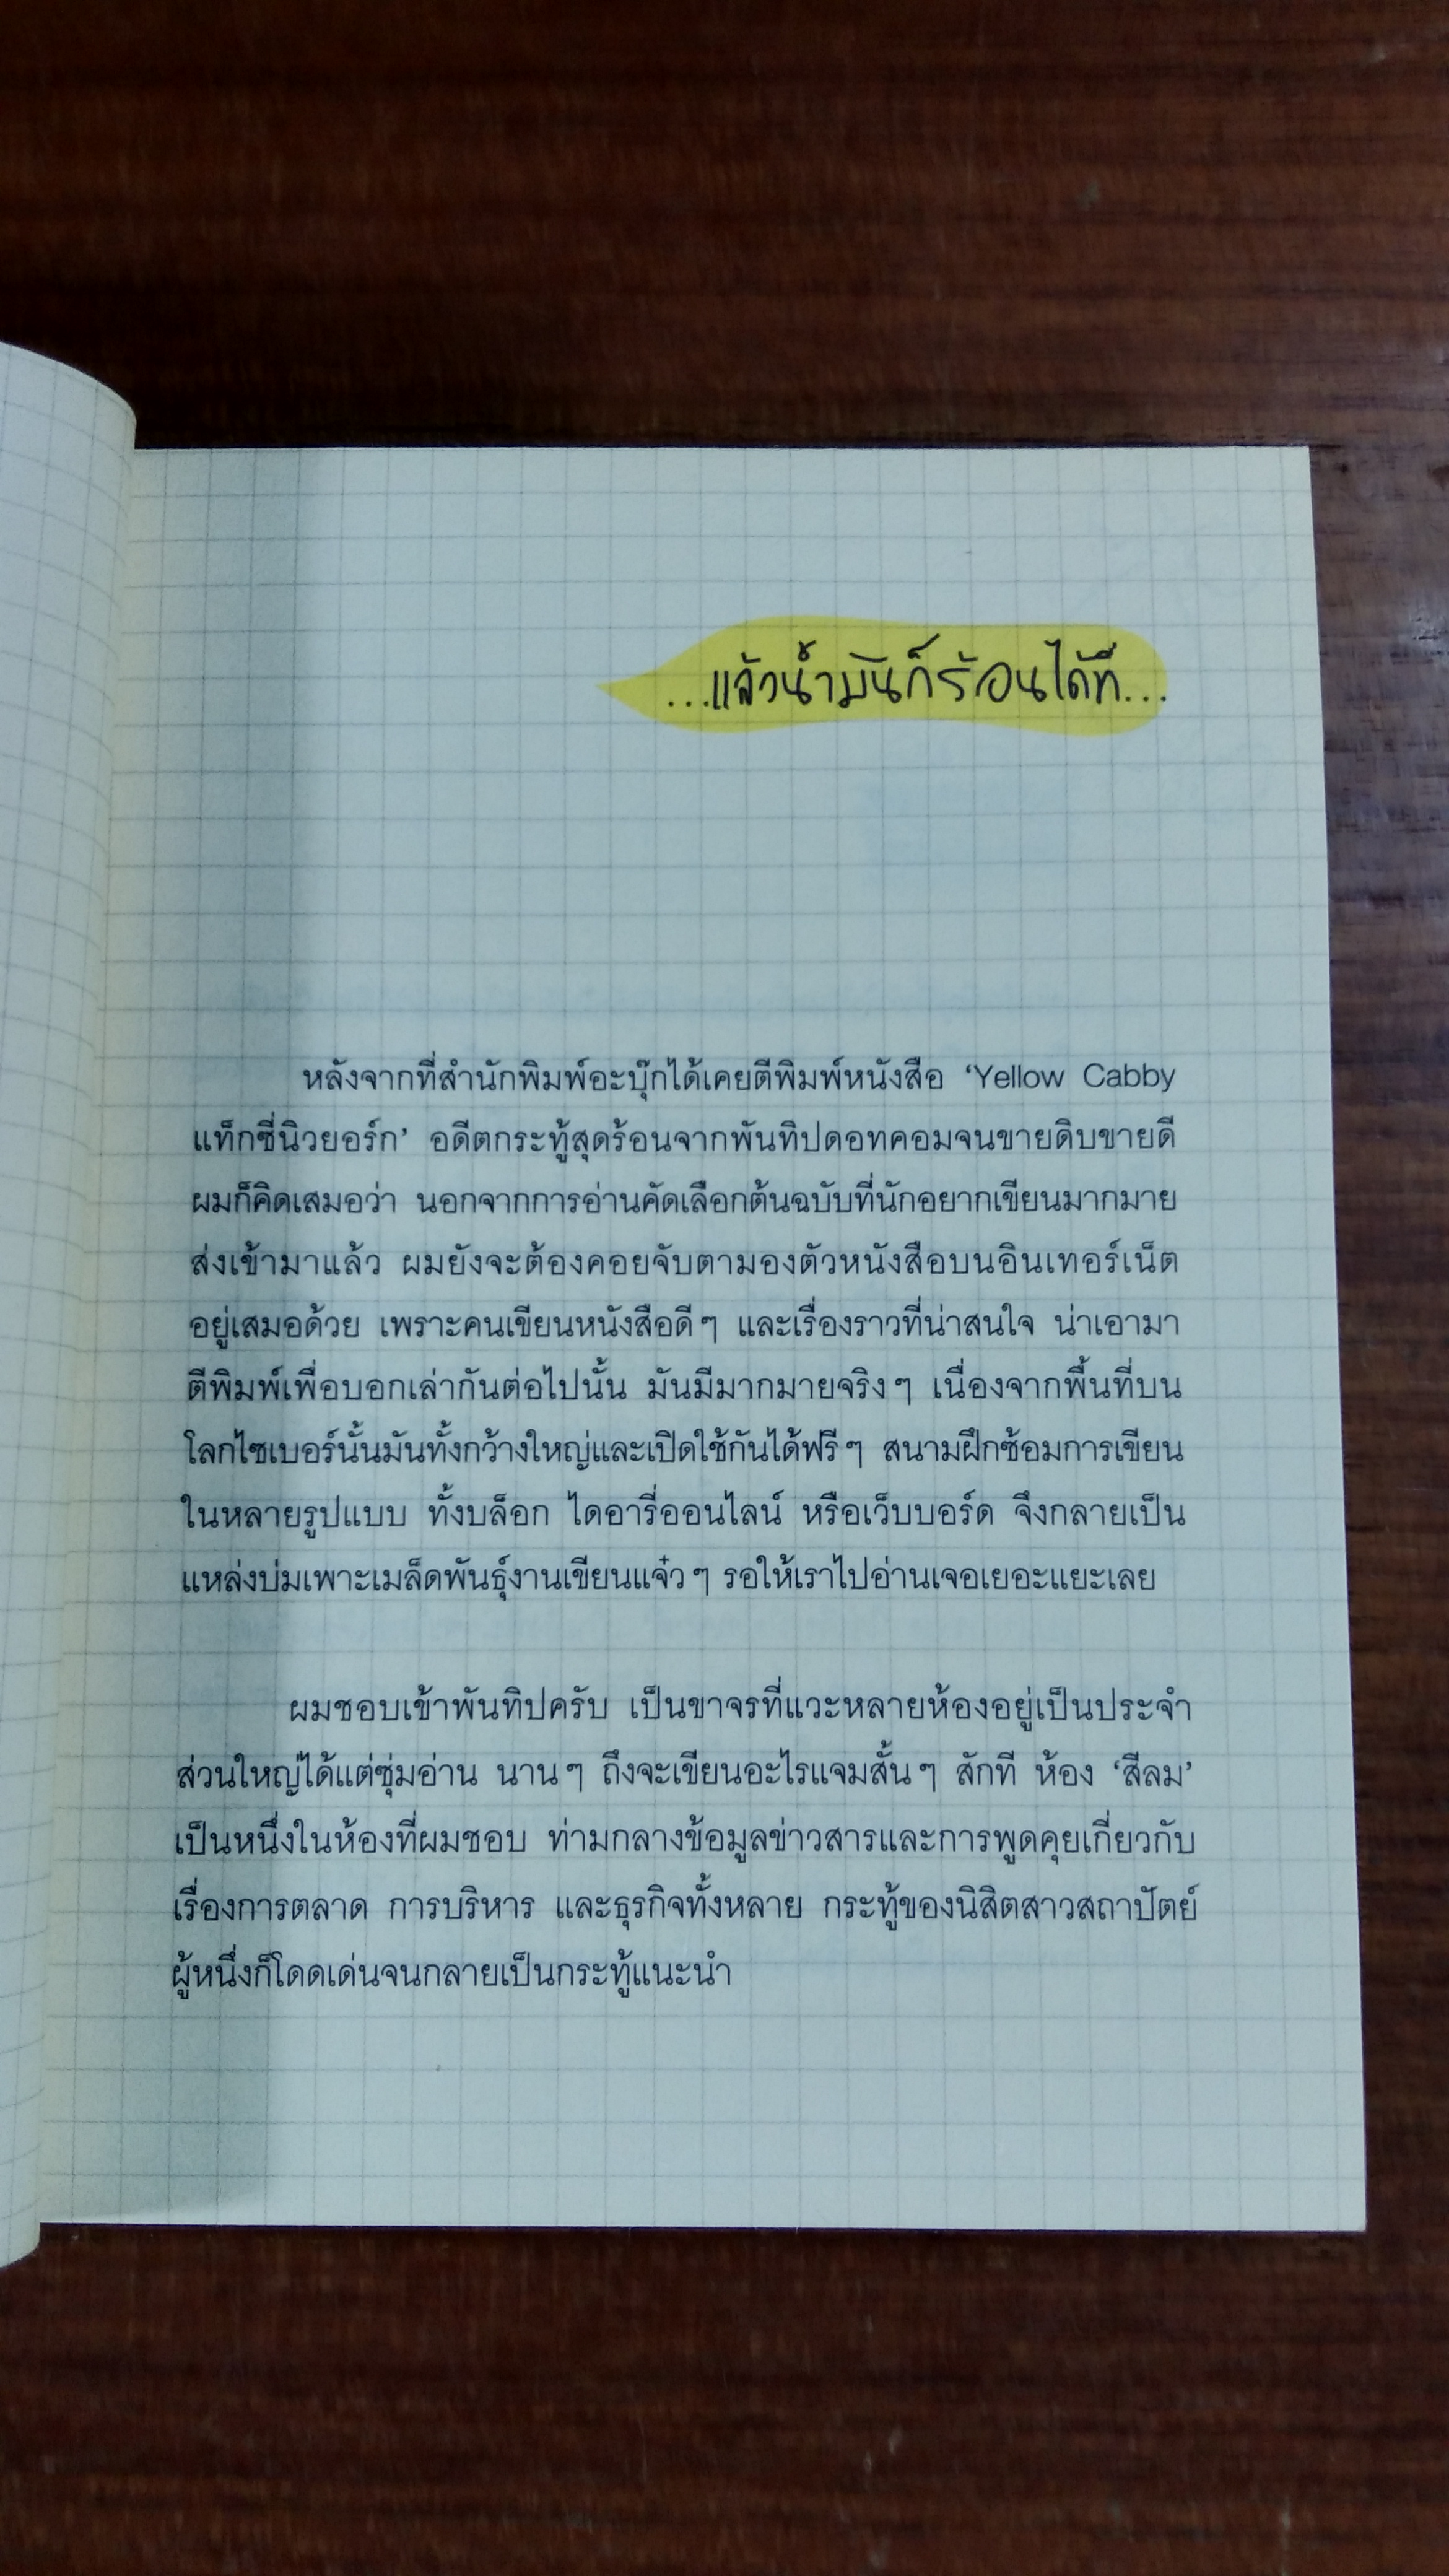 ...แล้วน้ำมันก็ร้อนได้ที่...
หลังจากที่สำนักพิมพ์อะบุ๊กได้เคยตีพิมพ์หนังสือ ‘Yellow Cabby
แท็กซี่นิวยอร์ก’ อดีตกระทู้สุดร้อนจากพันทิปดอทคอมจนขายดิบขายดี
ผมก็คิดเสมอว่า นอกจากการอ่านคัดเลือกต้นฉบับที่นักอยากเขียนมากมาย
ส่งเข้ามาแล้ว ผมยังจะต้องคอยจับตามองตัวหนังสือบนอินเทอร์เน็ต
อยู่เสมอด้วย เพราะคนเขียนหนังสือดีๆ และเรื่องราวที่น่าสนใจ น่าเอามา
ตีพิมพ์เพื่อบอกเล่ากันต่อไปนั้น มันมีมากมายจริงๆ เนื่องจากพื้นที่บน
โลกไซเบอร์นั้นมันทั้งกว้างใหญ่และเปิดใช้กันได้ฟรีๆ สนามฝึกซ้อมการเขียน
ในหลายรูปแบบ ทั้งบล็อก ไดอารี่ออนไลน์ หรือเว็บบอร์ด จึงกลายเป็น
แหล่งบ่มเพาะเมล็ดพันธุ์งานเขียนแจ๋วๆ รอให้เราไปอ่านเจอเยอะแยะเลย
ผมชอบเข้าพันทิปครับ เป็นขาจรที่แวะหลายห้องอยู่เป็นประจำ
ส่วนใหญ่ได้แต่ซุ่มอ่าน นานๆ ถึงจะเขียนอะไรแจมสั้นๆ สักที ห้อง ‘สีลม’
เป็นหนึ่งในห้องที่ผมชอบ ท่ามกลางข้อมูลข่าวสารและการพูดคุยเกี่ยวกับ
เรื่องการตลาด การบริหาร และธุรกิจทั้งหลาย กระทู้ของนิสิตสาวสถาปัตย์
ผู้หนึ่งก็โดดเด่นจนกลายเป็นกระทู้แนะนำ